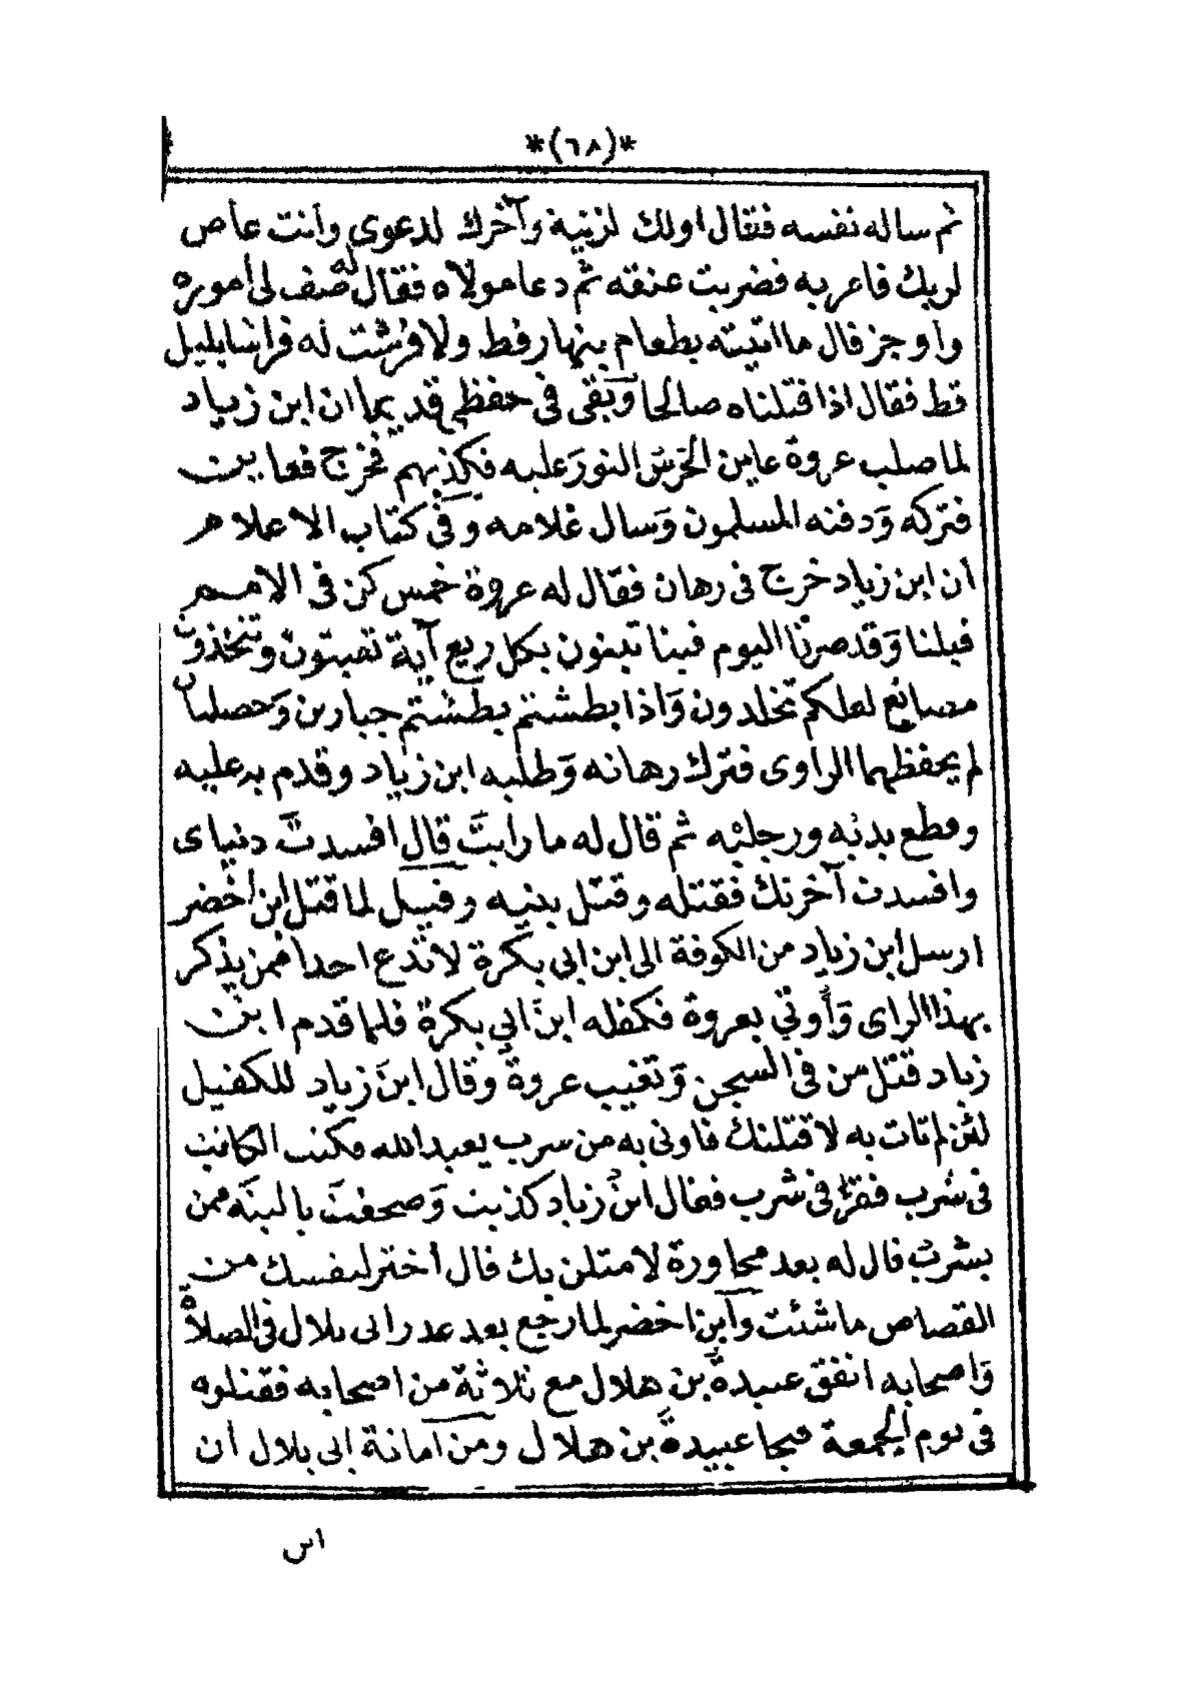 *(٦٨)*
ثم ساله نفسه فقال اولك لزنية وآخرك لدعوى وأنت عاص
لربك فامر به فضربت عنقه ثم دعا مولاه فقال له صف لى أموره
وأوجز قال ما اتيته بطعام بنهار قط ولا فرشت له فراشا بليل
قط فقال اذا قتلناه صالحا وبقى فى حفظى قديما ان ابن زياد
لما صلب عروة عاين الحرس النور عليه فكذبهم فخرج فعاين
فتركه ودفنه المسلمون وسال غلامه وفى كتاب الاعلام
أن ابن زياد خرج فى رهان فقال له عروة خمس كن فى الامم
قبلنا وقد صرنا اليوم فينا تبنون بكل ريع آية تعبثون وتتخذون
مصانع لعلكم تخلدون واذا بطشتم بطشتم جبارين وخصلتان
لم يحفظهما الراوى فترك رهانه وطلبه ابن زياد وقدم به عليه
وقطع يديه ورجليه ثم قال له ما رايت قال افسدت دنياى
وافسدت آخرتك فقتله وقتل بنيه وقيل لما قتل ابن اخضر
ارسل ابن زياد من الكوفة الى ابن ابى بكرة لا تدع احدا ممن يذكر
بهذا الراى وأوتي بعروة فكفله ابن ابي بكرة فلما قدم ابن
زياد قتل من فى السجن وتغيب عروة وقال ابن زياد للكفيل
لئن لم تات به لاقتلنك فاوتى به من سرب بعبدالله فكتب الكاتب
فى شرب فقرا فى شرب فقال ابن زياد كذبت وصحفت ياليته ممن
يشرب قال له بعد محاورة لامثلن بك قال أختر لنفسك من
القصاص ما شئت وآبن اخضر لما رجع بعد غدر ابى بلال فى الصلاة
واصحابه اتفق عبيدة بن هلال مع ثلاثة من اصحابه فقتلوه
فى يوم الجمعة فنجا عبيدة بن هلال ومن أمانة ابى بلال أن
اس